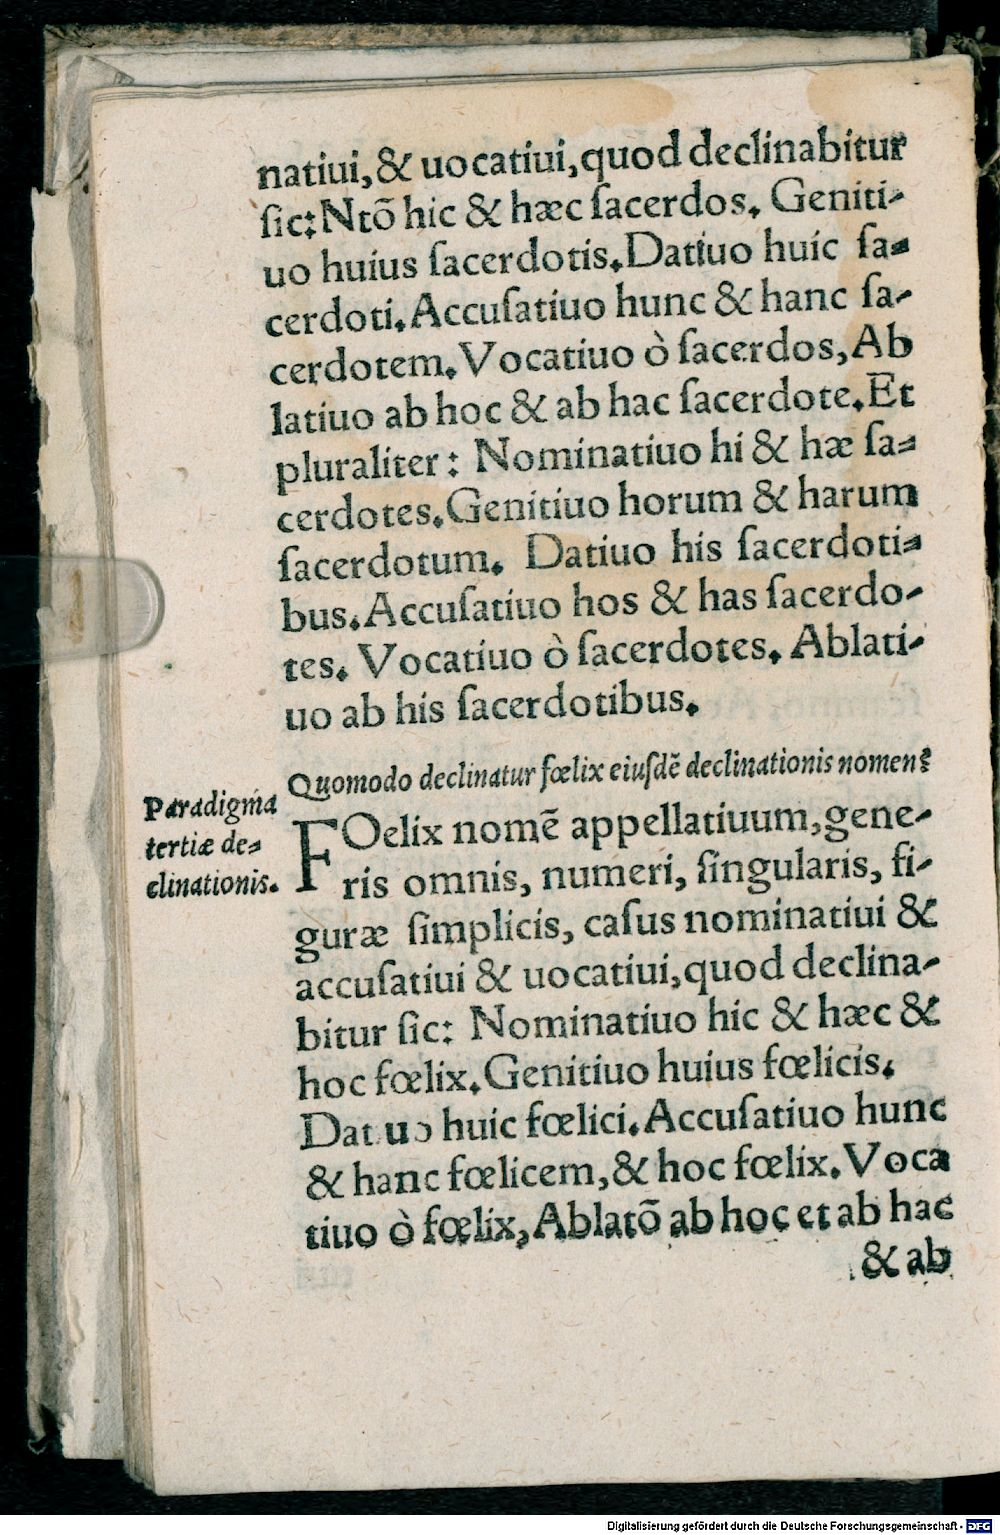 natiui,& uocatiui,quod declinabitur
ſic:Ntõ hic & hæc ſacerdos. Geniti-
uo huius ſacerdotis.Datiuo huic ſa-
cerdoti.Accuſatiuo hunc & hanc ſa-
cerdotem.Vocatiuo ò ſacerdos,Ab
latiuo ab hoc & ab hac ſacerdote.Et
pluraliter: Nominatiuo hi & hæ ſa-
cerdotes.Genitiuo horum & harum
ſacerdotum. Datiuo his ſacerdoti-
bus.Accuſatiuo hos & has ſacerdo-
tes. Vocatiuo ò ſacerdotes. Ablati-
uo ab his ſacerdotibus.
Quomodo declinatur fœlix eiuſdẽ declinationis nomen?
Paradigma
tertiæ de-
clinationis.
FOelix nomẽ appellatiuum,gene-
ris omnis, numeri, ſingularis, fi-
guræ ſimplicis, caſus nominatiui &
accuſatiui & uocatiui,quod declina-
bitur ſic: Nominatiuo hic & hæc &
hoc fœlix.Genitiuo huius fœlicis.
Datiuo huic fœlici.Accuſatiuo hunc
& hanc fœlicem,& hoc fœlix.Voca
tiuo ò fœlix,Ablatõ ab hoc et ab hac
& ab
Digitalisierung gefördert durch die Deutsche Forschungsgemeinschaft - DFG